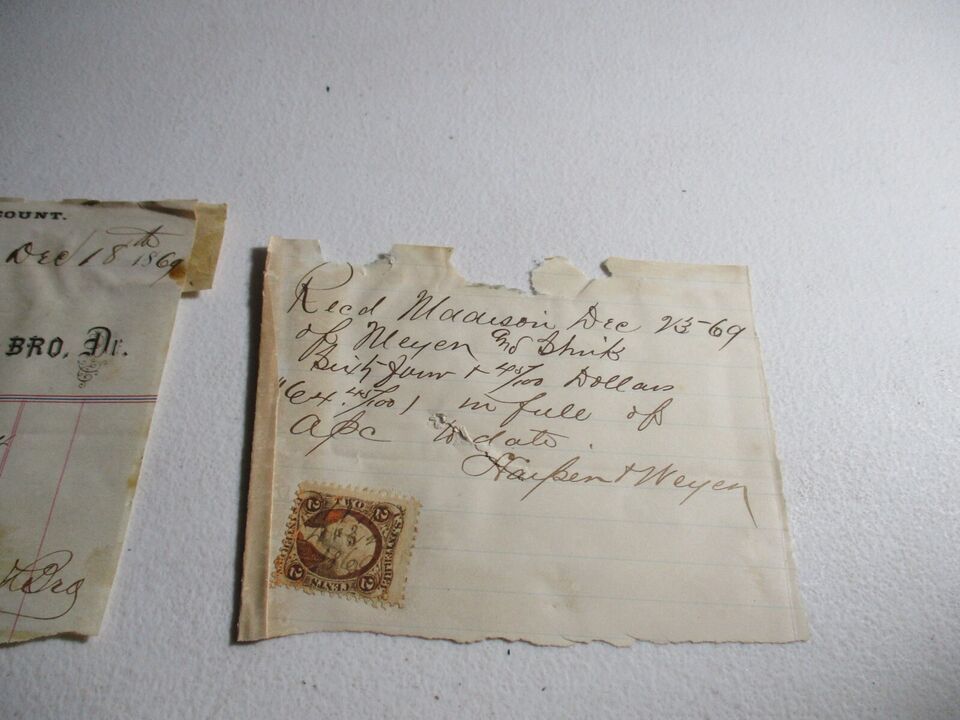 COUNT.
Dec 18th 1869
BRO, Dr.
Bro
Recd Madison Dec 23-69
of Meyer and
Sixty four & 45/100 Dollars
"64.45/100) in full of
a/c to date.
& Weyen
TWO
U.S. INTER. REV.
CENTS
2 2 2 2